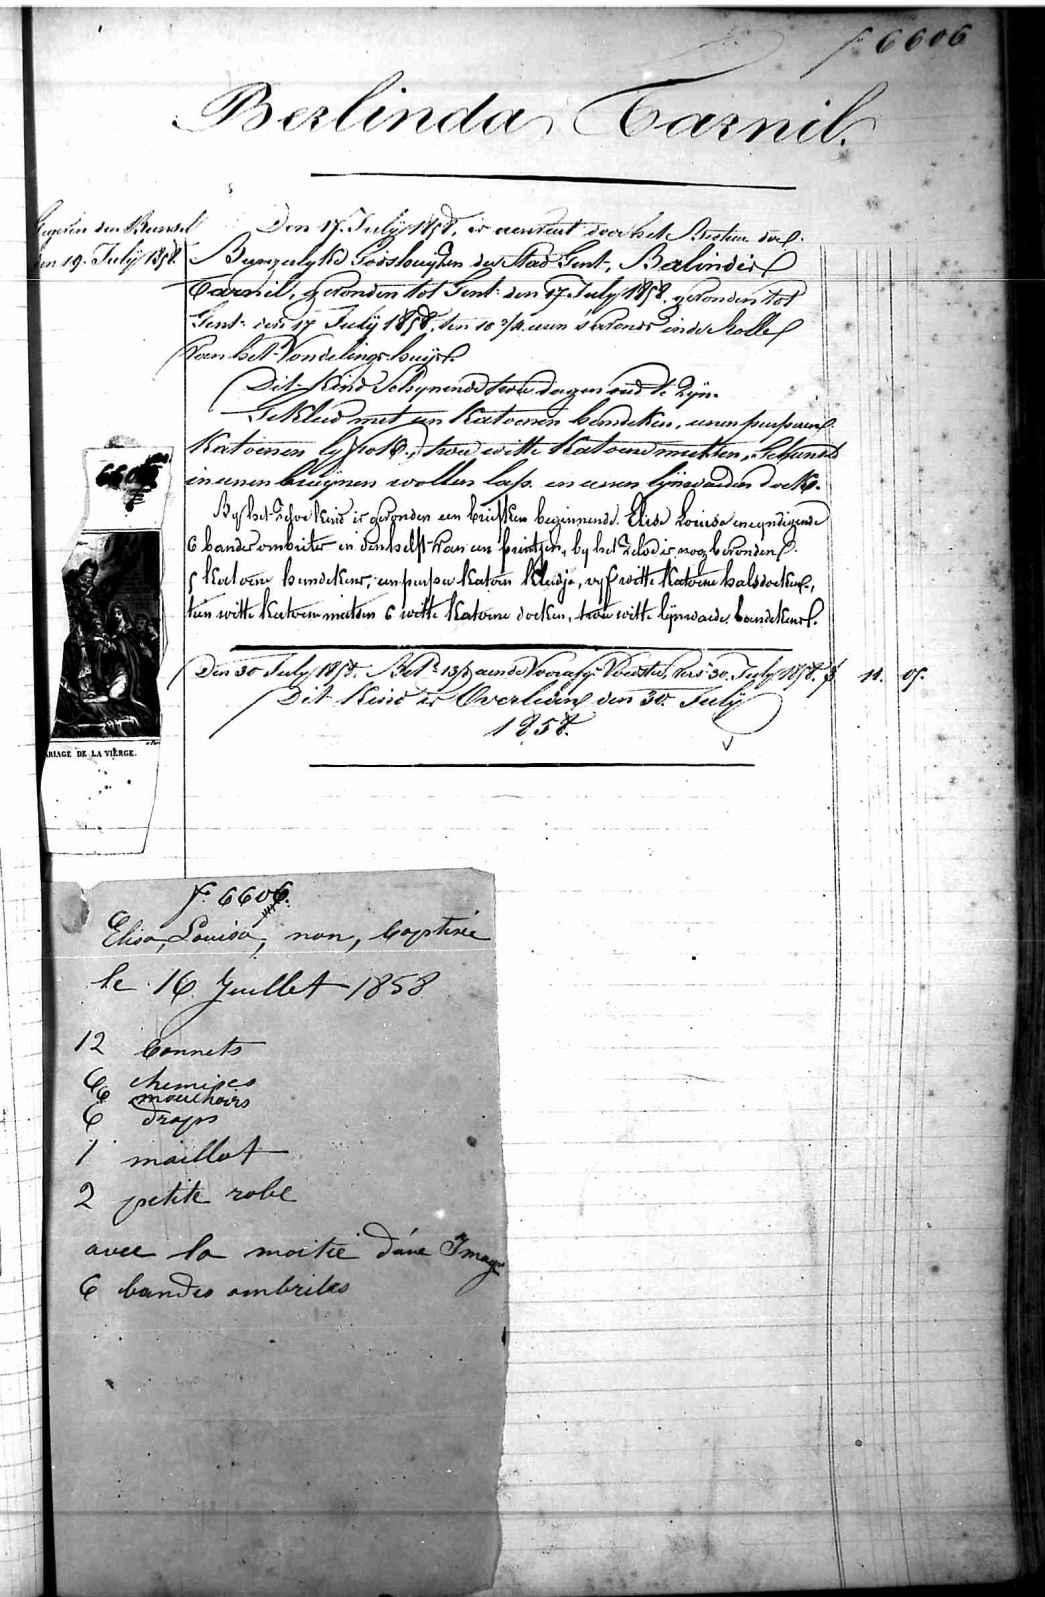 f° 6606
Berlinda Tarnil.
den 19. Julÿ 1858.
Den 17. Julÿ 1858, is aenveird door het Bestier der
Burgerlyke Godshuyzen der Stad Gent, Belinda
Tarnil, gevonden tot Gent den 17 July 1858. gevonden tot
Gent den 17 Julÿ 1858, ten 10 3/4 uren s'avonds in de Rolle
van het Vondelings huys.
Dit Kind Schynende twee dagen oud te Zyn.
Gekleed met een Katoenen hemdeken, eenen purperen
Katoenen lyfrok, twee witte Katoene mutsen,
in eenen bruynen wollen lap en eenen lynwaeden doek.
By het Zelve kind is gevonden een briefken beginnende Elisa Louisa en eyndigende
6 bandes ombriles en den helft van een printjen, by het Zelve is nog bevonden
5 Katoene hemdekens, een purper Katoen Kleedje, vyf witte Katoene halsdoeken,
tien witte Katoene mutsen 6 witte Katoene doeken, twee witte lynwaede bandekens.
6606
MARIAGE DE LA VIERGE.
Den 30 July 1858. Bet. 13 aen de Voorafg. Voedster, 30. July 1858. f 11. 05.
Dit Kind is Overleden den 30. Julÿ
1858.
f° 6606.
Elisa, Louisa, non, baptisée
le 16 Juillet 1858
12 bonnets
6 chemises
6 mouchoirs
6 draps
1 maillot
2 petite robe
avec la moitié d'une Image
6 bandes ombriles